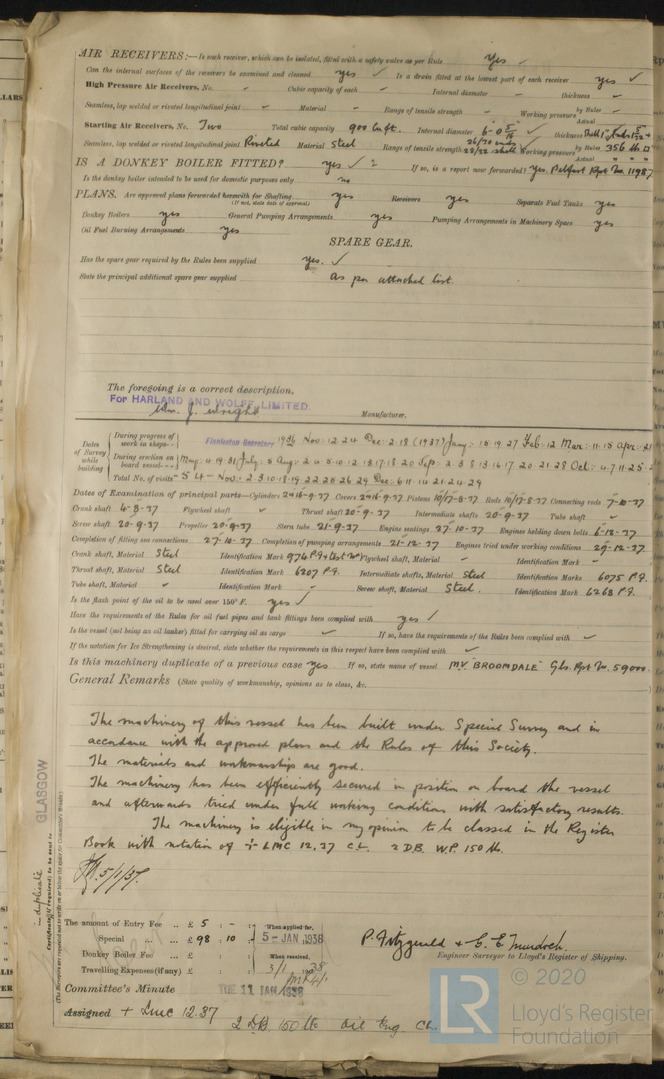 AIR RECEIVERS:—Is each receiver, which can be isolated, fitted with a safety valve as per Rule Yes ✓
Can the internal surfaces of the receivers be examined and cleaned yes ✓ Is a drain fitted at the lowest part of each receiver yes ✓
High Pressure Air Receivers, No. Cubic capacity of each Internal diameter thickness
Seamless, lap welded or riveted longitudinal joint Material Range of tensile strength Working pressure by Rules Actual
Starting Air Receivers, No. Two Total cubic capacity 900 Cu.ft. Internal diameter 6-0 5/16 thickness
Seamless, lap welded or riveted longitudinal joint Riveted Material Steel Range of tensile strength 26/30 ends 28/32 shell Working pressure by Rules 356 lb □" Actual
IS A DONKEY BOILER FITTED? yes ✓ 2 If so, is a report now forwarded? Yes, Belfast Rpt No. 11987
Is the donkey boiler intended to be used for domestic purposes only no
PLANS. Are approved plans forwarded herewith for Shafting yes Receivers yes Separate Fuel Tanks yes
(If not, state date of approval)
Donkey Boilers yes General Pumping Arrangements yes Pumping Arrangements in Machinery Space yes
Oil Fuel Burning Arrangements yes
SPARE GEAR.
Has the spare gear required by the Rules been supplied yes. ✓
State the principal additional spare gear supplied As per attached list.
The foregoing is a correct description,
For HARLAND AND WOLFF, LIMITED.
Wm. J. Wright Manufacturer.
Dates of Survey while building
During progress of work in shops - - 1936 Nov: 12 24 Dec: 2 18 (1937) Jany: 15 19 27 Feb: 12 Mar: 11 15 Apr: 21
During erection on board vessel - - - May: 4 19 31 July: 5 Aug: 2 4 5 10 12 13 17 18 20 Sep: 2 3 8 13 16 17 20 21 28 Oct: 4 7 11 25
Total No. of visits 54 Nov: 2 3 10 18 19 22 25 26 29 Dec: 6 11 14 21 24 29
Dates of Examination of principal parts—Cylinders Covers Pistons 10/17-8-37 Rods 10/17-8-37 Connecting rods 7-10-37
Crank shaft 4-8-37 Flywheel shaft Thrust shaft 20-9-37 Intermediate shafts 20-9-37 Tube shaft
Screw shaft 20-9-37 Propeller 20-9-37 Stern tube 21-9-37 Engine seatings 27-10-37 Engines holding down bolts 6-12-37
Completion of fitting sea connections 27-10-37 Completion of pumping arrangements 21-12-37 Engines tried under working conditions 29-12-37
Crank shaft, Material Steel Identification Mark Flywheel shaft, Material Identification Mark
Thrust shaft, Material Steel Identification Mark 6207 P.F. Intermediate shafts, Material Steel Identification Marks 6075 P.F.
Tube shaft, Material Identification Mark Screw shaft, Material Steel. Identification Mark 6268 P.F.
Is the flash point of the oil to be used over 150° F. yes ✓
Have the requirements of the Rules for oil fuel pipes and tank fittings been complied with yes ✓
Is the vessel (not being an oil tanker) fitted for carrying oil as cargo ✓ If so, have the requirements of the Rules been complied with ✓
If the notation for Ice Strengthening is desired, state whether the requirements in this respect have been complied with ✓
Is this machinery duplicate of a previous case yes If so, state name of vessel M.V. "BROOMDALE" Gls. Rpt No. 59000
General Remarks (State quality of workmanship, opinions as to class, &c.
The machinery of this vessel has been built under Special Survey and in
accordance with the approved plans and the Rules of this Society.
The materials and workmanship are good.
The machinery has been efficiently secured in position on board the vessel
and afterwards tried under full working conditions with satisfactory results.
The machinery is eligible in my opinion to be classed in the Register
Book with notation of + LMC 12.37 C.L. 2 D.B. W.P. 150 lb.
5/1/37.
GLASGOW
in duplicate
Certificate (if required) to be sent to
(The Surveyors are requested not to write on or below the space for Committee's Minute.)
The amount of Entry Fee .. £ 5 : - :
Special ... £ 98 : 10 :
Donkey Boiler Fee ... £ : :
Travelling Expenses (if any) £ : :
When applied for,
5-JAN.1938
When received,
3/1 1938
P. Fitzgerald & C. E. Murdoch.
Engineer Surveyor to Lloyd's Register of Shipping.
Committee's Minute TUE 11 JAN 1938
Assigned + Lmc 12.37
2 D.B. 150 lb Oil Eng CL.
© 2020
LR
Lloyd's Register
Foundation